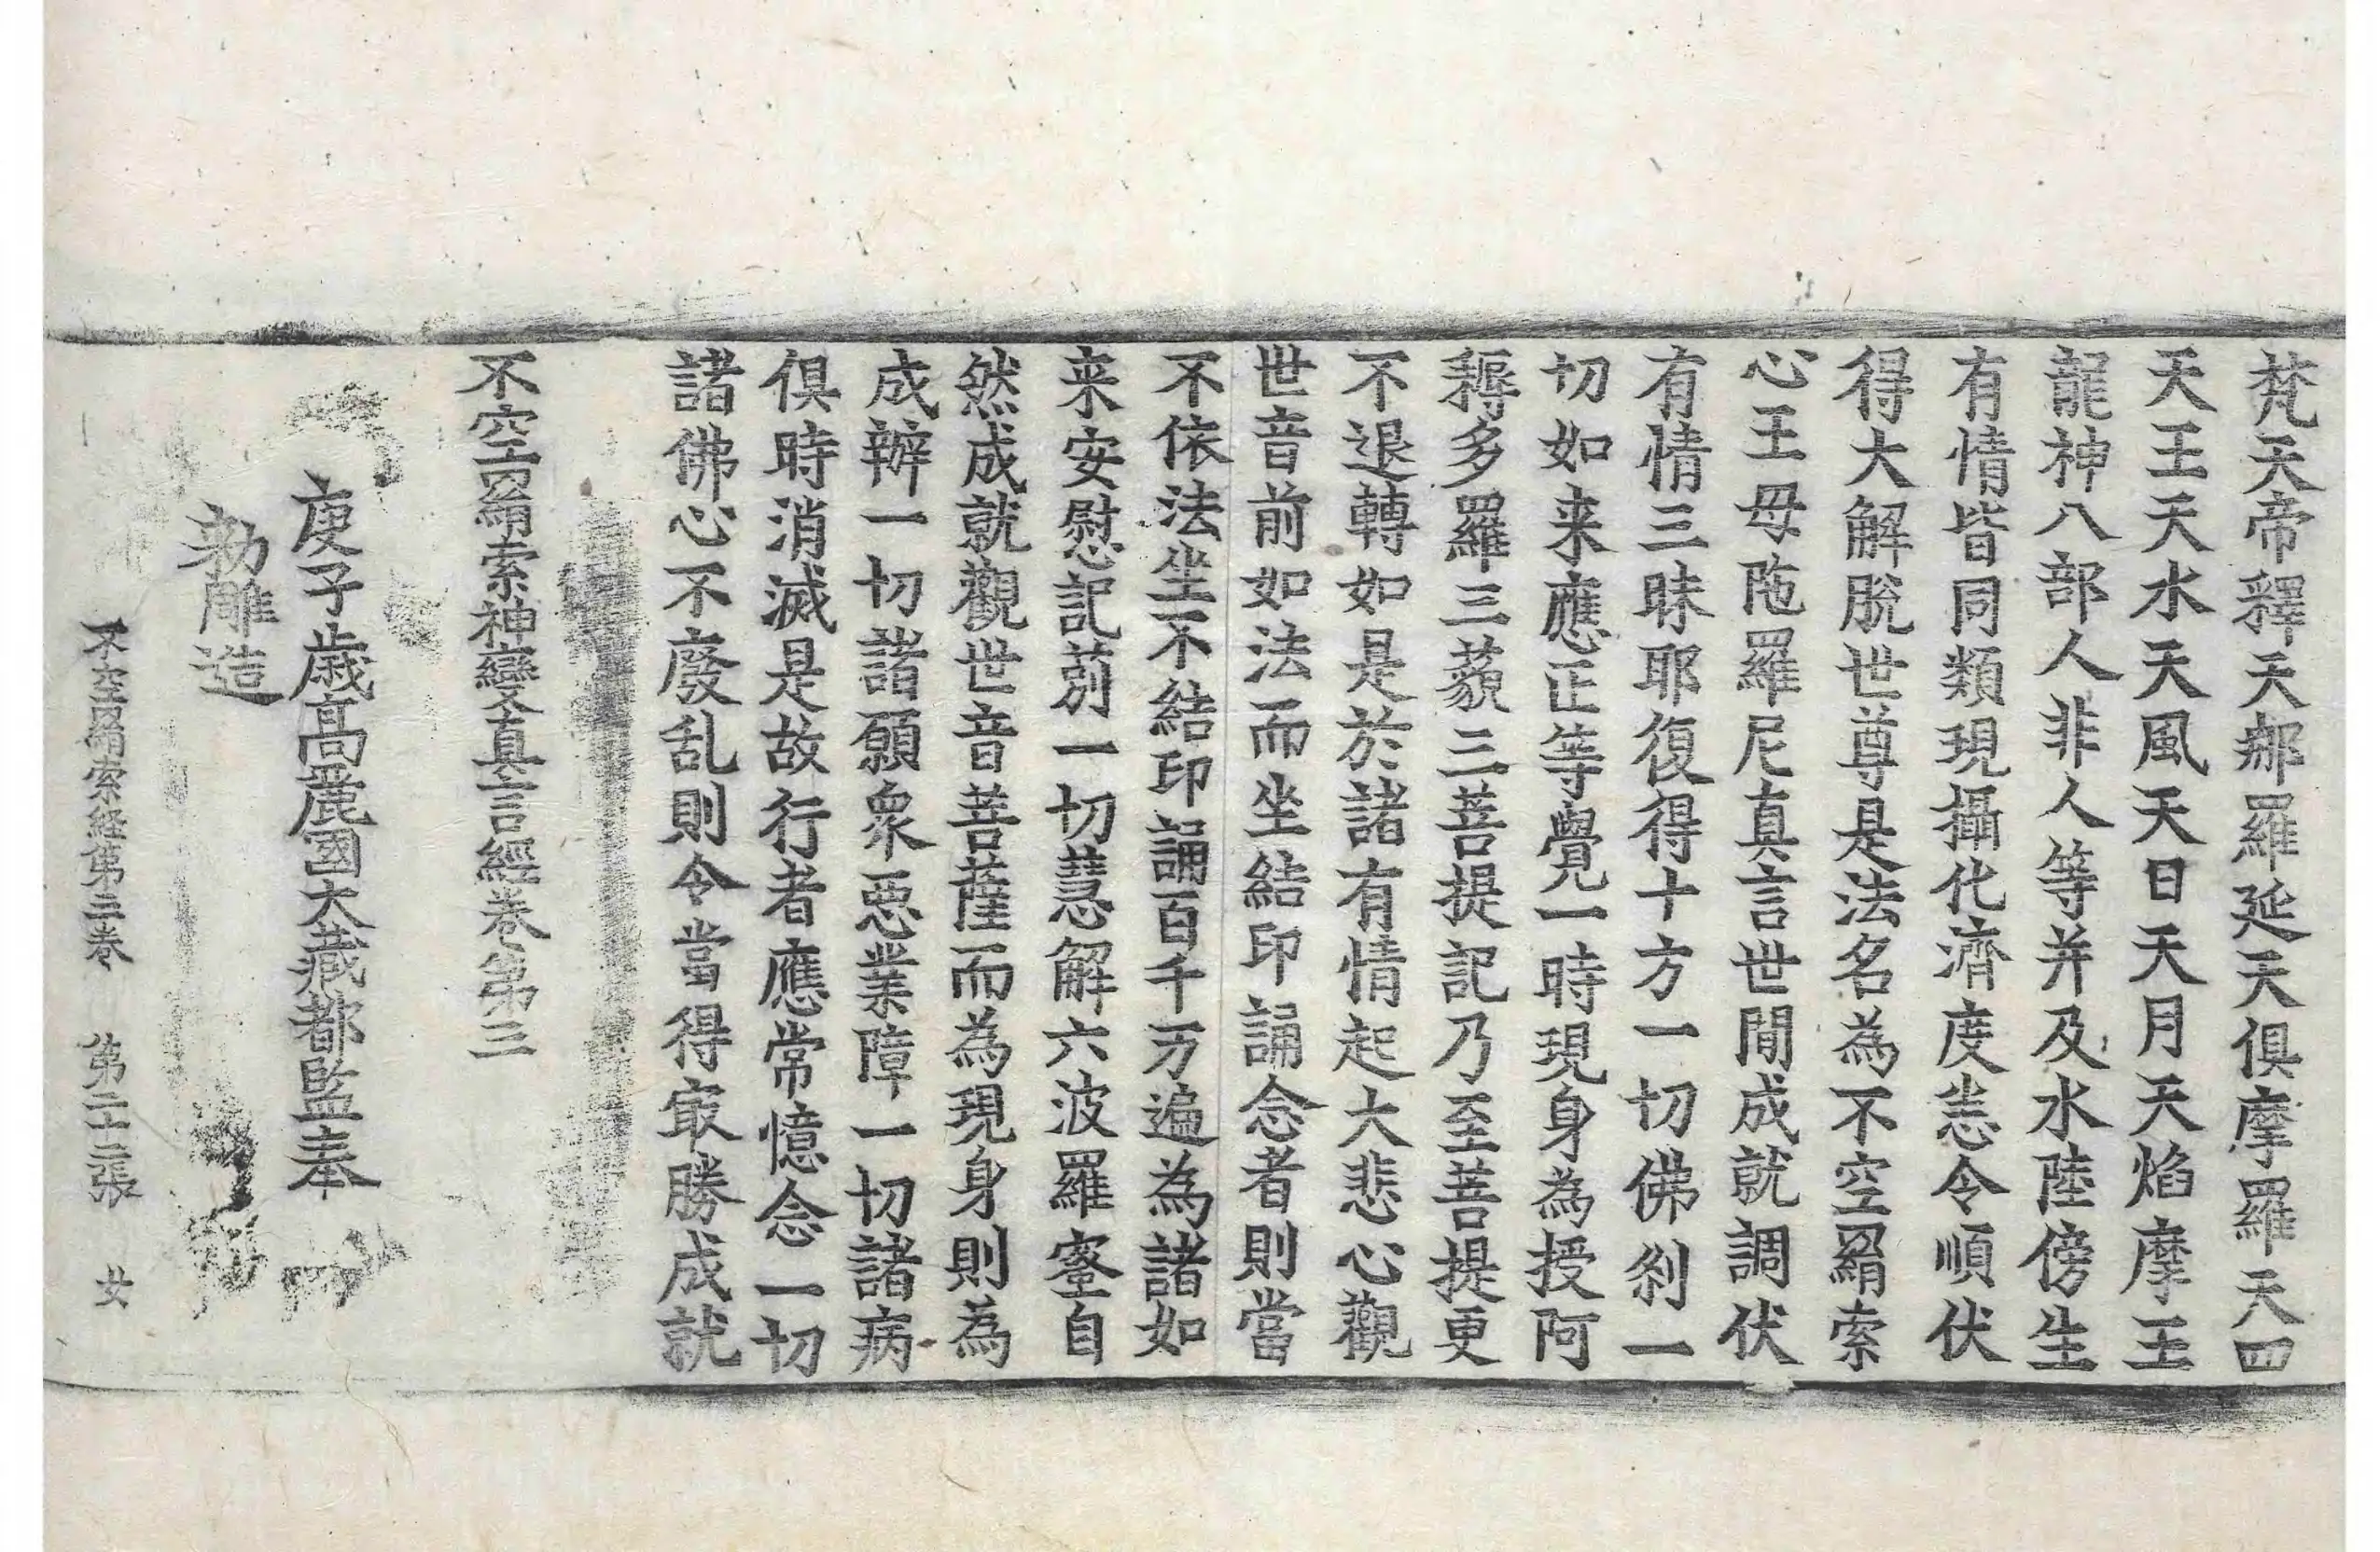 梵天帝釋天那羅延天俱摩羅天四
天王天水天風天日天月天焰摩王
龍神八部人非人等并及水陸傍生
有情皆同類現攝化濟度恙令順伏
得大解脫世尊是法名為不空羂索
心王母陁羅尼真言世間成就調伏
有情三昧耶復得十方一切佛剎一
切如来應正等覺一時現身為授阿
耨多羅三藐三菩提記乃至菩提更
不退轉如是於諸有情起大悲心觀
世音前如法而坐結印誦念者則當
不依法坐不結印誦百千万遍為諸如
来安慰記莂一切慧解六波羅蜜自
然成就觀世音菩薩而為現身則為
成辦一切諸願衆惡業障一切諸病
俱時消滅是故行者應常憶念一切
諸佛心不廢乱則令當得㝡勝成就
不空羂索神變真言經卷第三
庚子歲高麗國大藏都監奉
勅雕造
不空羂索経第三卷 第二十三張 女